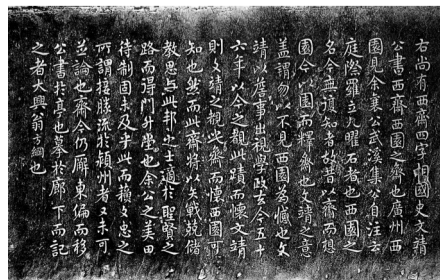 右尚有西齋四字相國史文靖
公書西齋西園之齋也廣州西
園見余襄公武溪集公自注云
庭際羅立九曜石者也西園之
名今無復知者故昔以齋而想
園今以園而釋齋也文靖之意
盖謂勿以不見西園為憾也文
靖以詹事出視學政去今五十
六年以今之觀此蹟而懷文靖
則文靖之觀此齋而懷西園可
知也然而此齋將以矢戰兢儲
教思與此邦之士適於聖賢之
路而得門升堂也余公之美田
待制固未及乎此而蘓文忠之
所謂接賸流於潁州者又未可
並論也齋今仍廨東偏而移
公書於亭也摹於廊下而記
之者大興翁方綱也